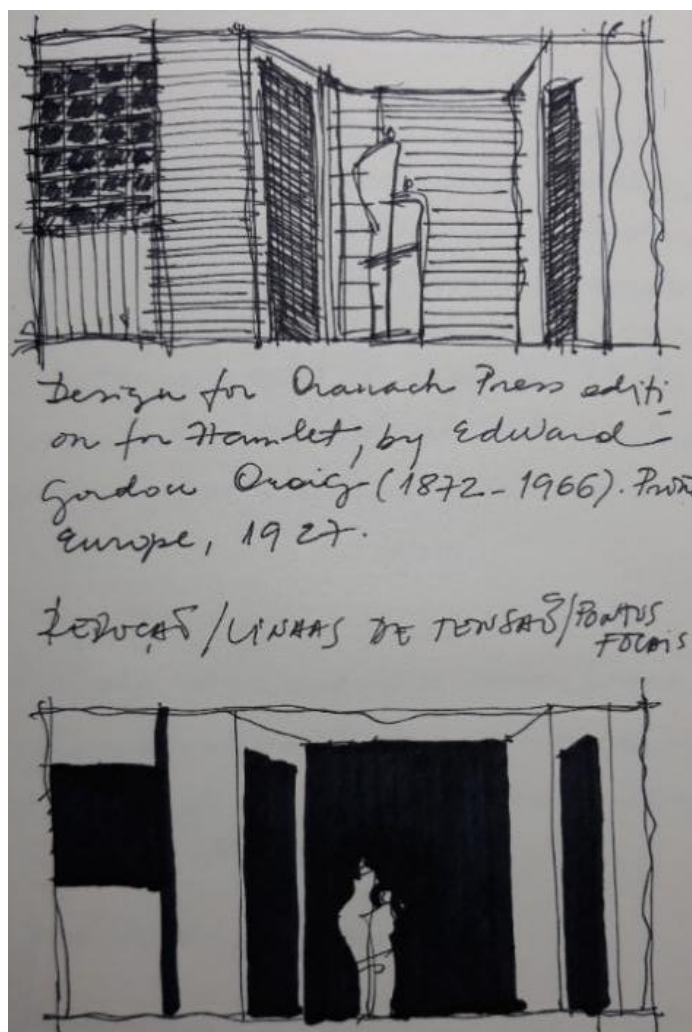 Design for Cranach Press editi-
on for Hamlet, by Edward
Gordon Craig (1872-1966).
Europe, 1927.
REDUÇÃO/LINHAS DE TENSÃO/PONTOS
FOCAIS